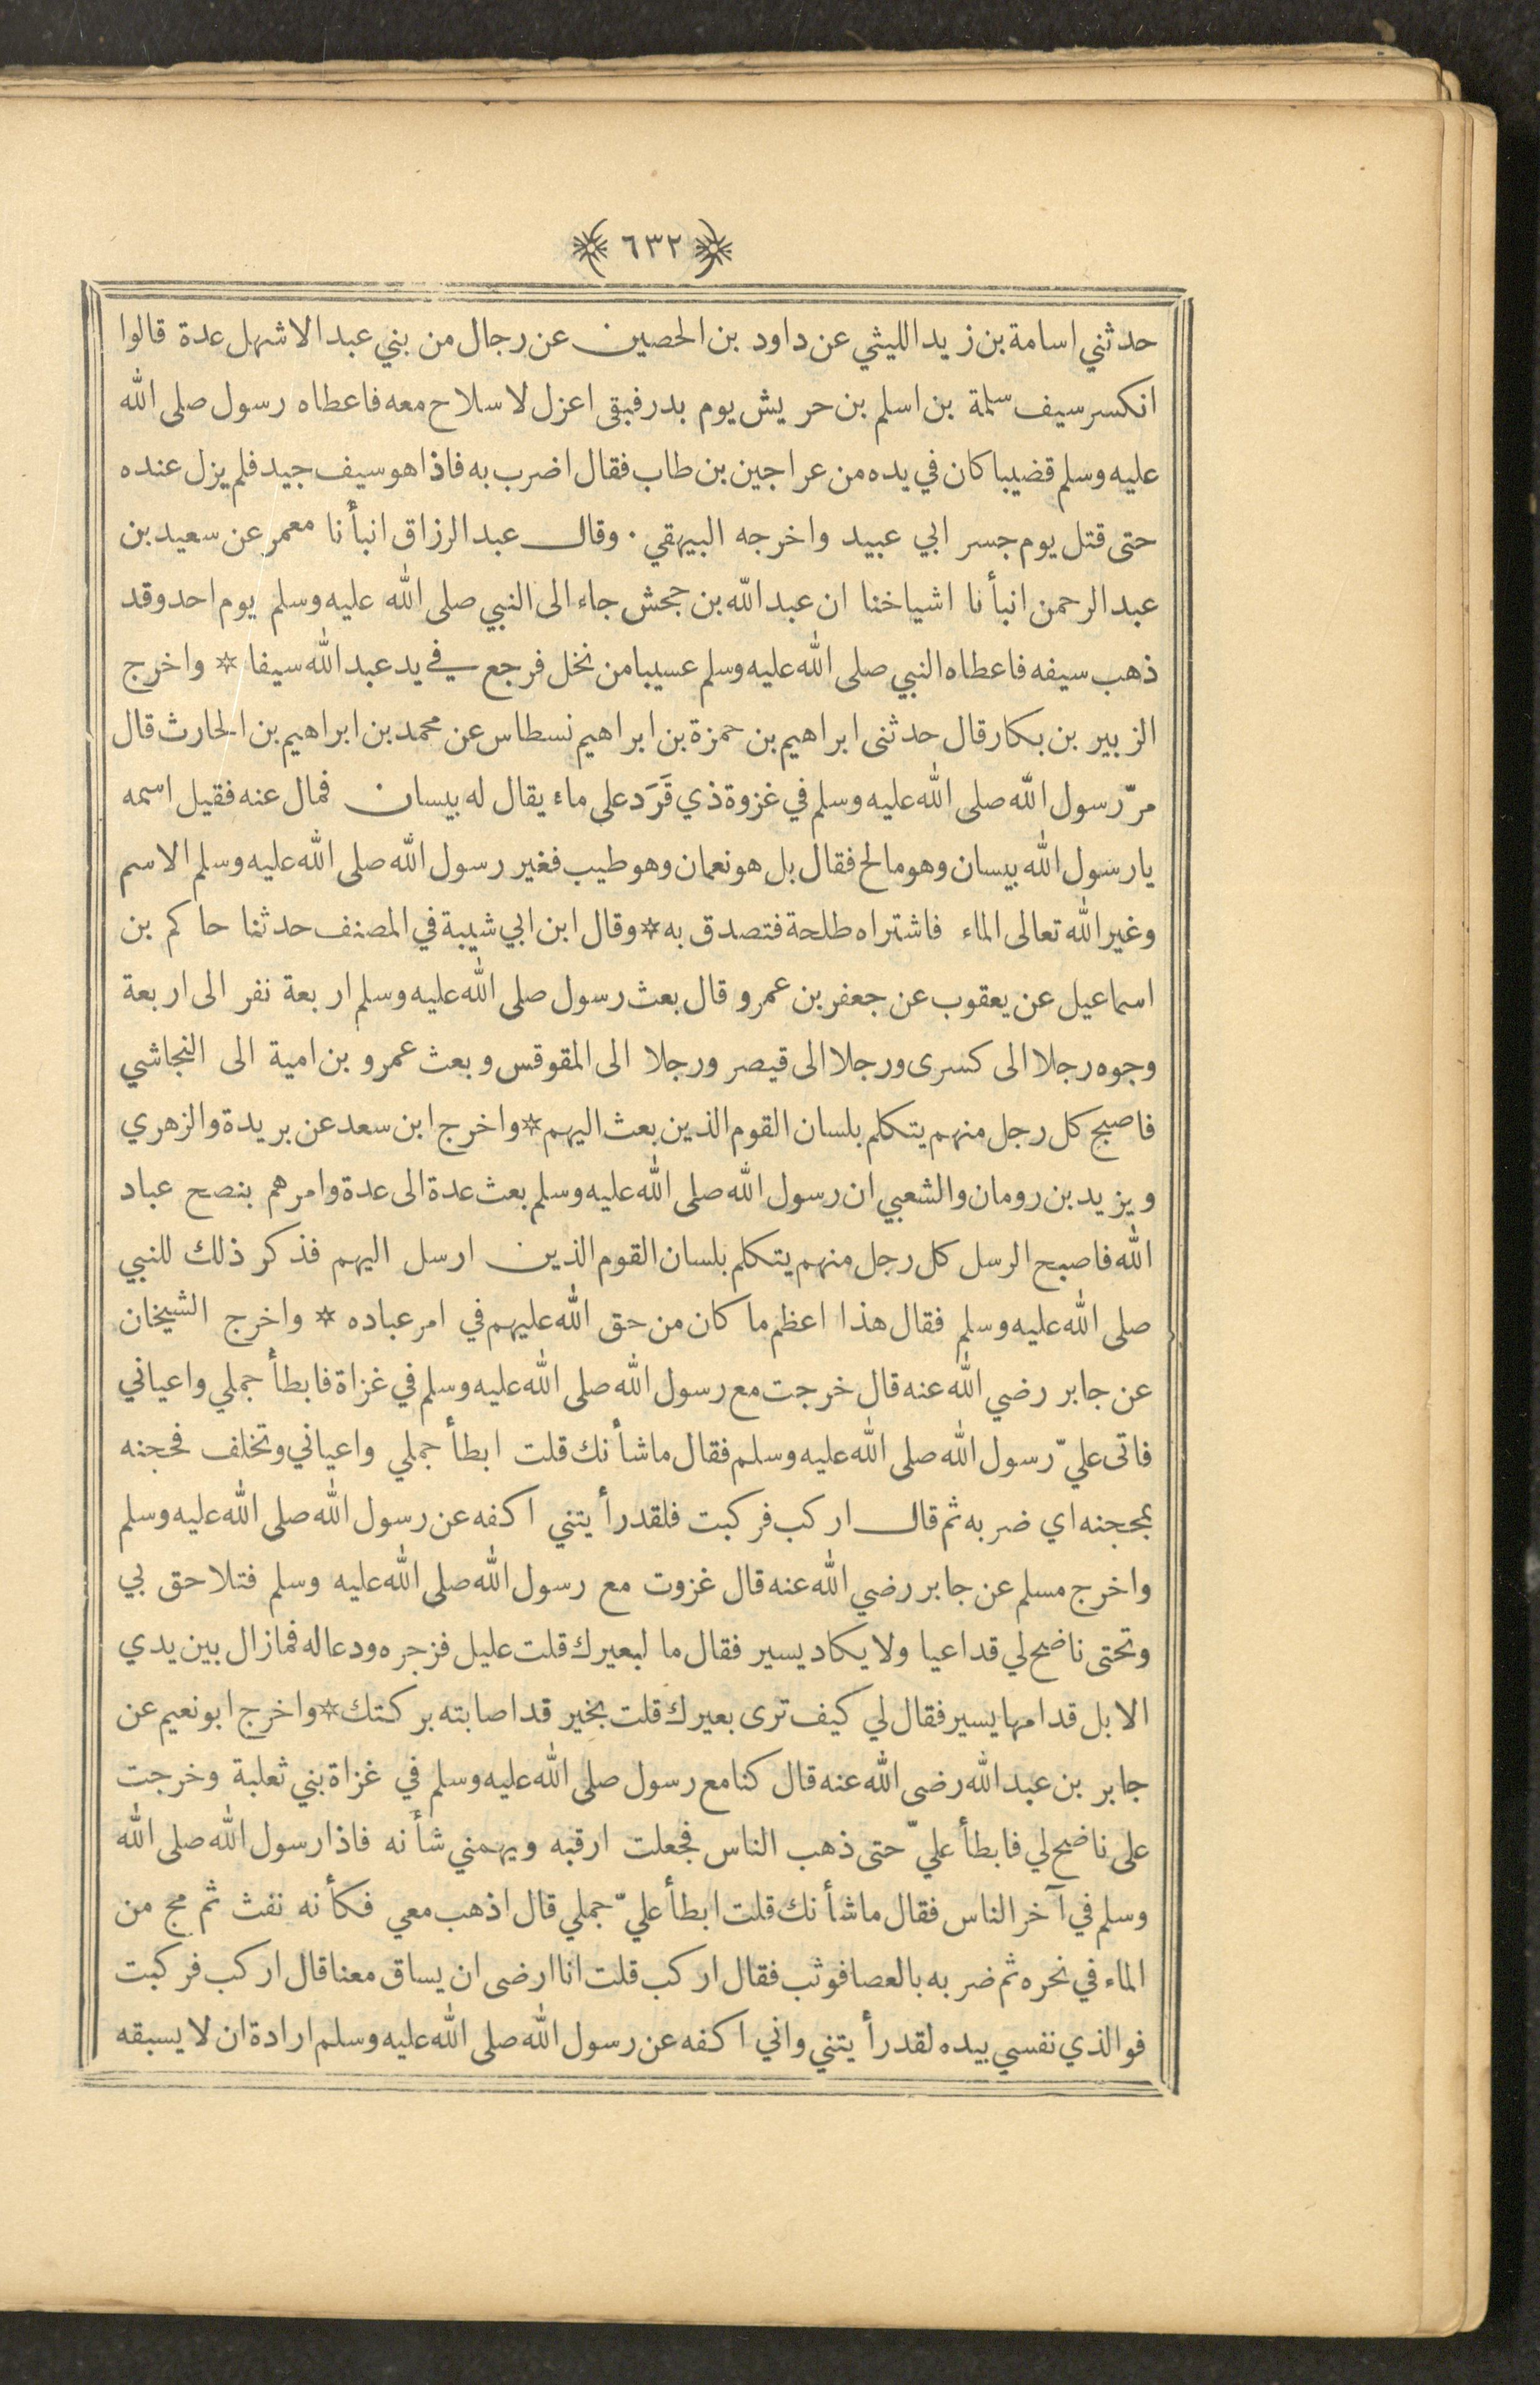 ٦٣٢
حدثني اسامة بن زيد الليثي عن داود بن الحصين عن رجال من بني عبد الاشهل عدة قالوا
انكسر سيف سلمة بن اسلم بن حريش يوم بدر فبقى اعزل لا سلاح معه فاعطاه رسول صلى الله
عليه وسلم قضيبا كان في يده من عراجين بن طاب فقال اضرب به فاذا هو سيف جيد فلم يزل عنده
حتى قتل يوم جسر ابي عبيد واخرجه البيهقي · وقال عبد الرزاق انبأنا معمر عن سعيد بن
عبد الرحمن انبأنا اشياخنا ان عبد الله بن جحش جاء الى النبي صلى الله عليه وسلم يوم احد وقد
ذهب سيفه فاعطاه النبي صلى الله عليه وسلم عسيبا من نخل فرجع في يد عبد الله سيفا * واخرج
الزبير بن بكار قال حدثنى ابراهيم بن حمزة بن ابراهيم نسطاس عن محمد بن ابراهيم بن الحارث قال
مرّ رسول الله صلى الله عليه وسلم في غزوة ذي قَرَد على ماء يقال له بيسان فمال عنه فقيل اسمه
يا رسول الله بيسان وهو مالح فقال بل هو نعمان وهو طيب فغير رسول الله صلى الله عليه وسلم الاسم
وغير الله تعالى الماء فاشتراه طلحة فتصدق به * وقال ابن ابي شيبة في المصنف حدثنا حاكم بن
اسماعيل عن يعقوب عن جعفر بن عمرو قال بعث رسول صلى الله عليه وسلم اربعة نفر الى اربعة
وجوه رجلا الى كسرى ورجلا الى قيصر ورجلا الى المقوقس وبعث عمرو بن امية الى النجاشي
فاصبح كل رجل منهم يتكلم بلسان القوم الذين بعث اليهم * واخرج ابن سعد عن بريدة والزهري
ويزيد بن رومان والشعبي ان رسول الله صلى الله عليه وسلم بعث عدة الى عدة وامرهم بنصح عباد
الله فاصبح الرسل كل رجل منهم يتكلم بلسان القوم الذين ارسل اليهم فذكر ذلك للنبي
صلى الله عليه وسلم فقال هذا اعظم ما كان من حق الله عليهم في امر عباده * واخرج الشيخان
عن جابر رضي الله عنه قال خرجت مع رسول الله صلى الله عليه وسلم في غزاة فابطأ جملي واعياني
فاتى عليّ رسول الله صلى الله عليه وسلم فقال ما شأنك قلت ابطأ جملي واعياني وتخلف فحجنه
بمحجنه اي ضربه ثم قال اركب فركبت فلقد رأيتني اكفه عن رسول الله صلى الله عليه وسلم
واخرج مسلم عن جابر رضي الله عنه قال غزوت مع رسول الله صلى الله عليه وسلم فتلاحق بي
وتحتى ناضح لي قد اعيا ولا يكاد يسير فقال ما لبعيرك قلت عليل فزجره ودعا له فمازال بين يدي
الابل قدامها يسير فقال لي كيف ترى بعيرك قلت بخير قد اصابته بركتك * واخرج ابو نعيم عن
جابر بن عبد الله رضى الله عنه قال كنا مع رسول صلى الله عليه وسلم في غزاة بني ثعلبة وخرجت
على ناضح لي فابطأ عليّ حتى ذهب الناس فجعلت ارقبه ويهمني شأنه فاذا رسول الله صلى الله
وسلم في آخر الناس فقال ما شأنك قلت ابطأ عليّ جملي قال اذهب معي فكأنه نفث ثم مج من
الماء في نحره ثم ضربه بالعصا فوثب فقال اركب قلت انا ارضى ان يساق معنا قال اركب فركبت
فوالذي نفسي بيده لقد رأيتني واني اكفه عن رسول الله صلى الله عليه وسلم ارادة ان لا يسبقه